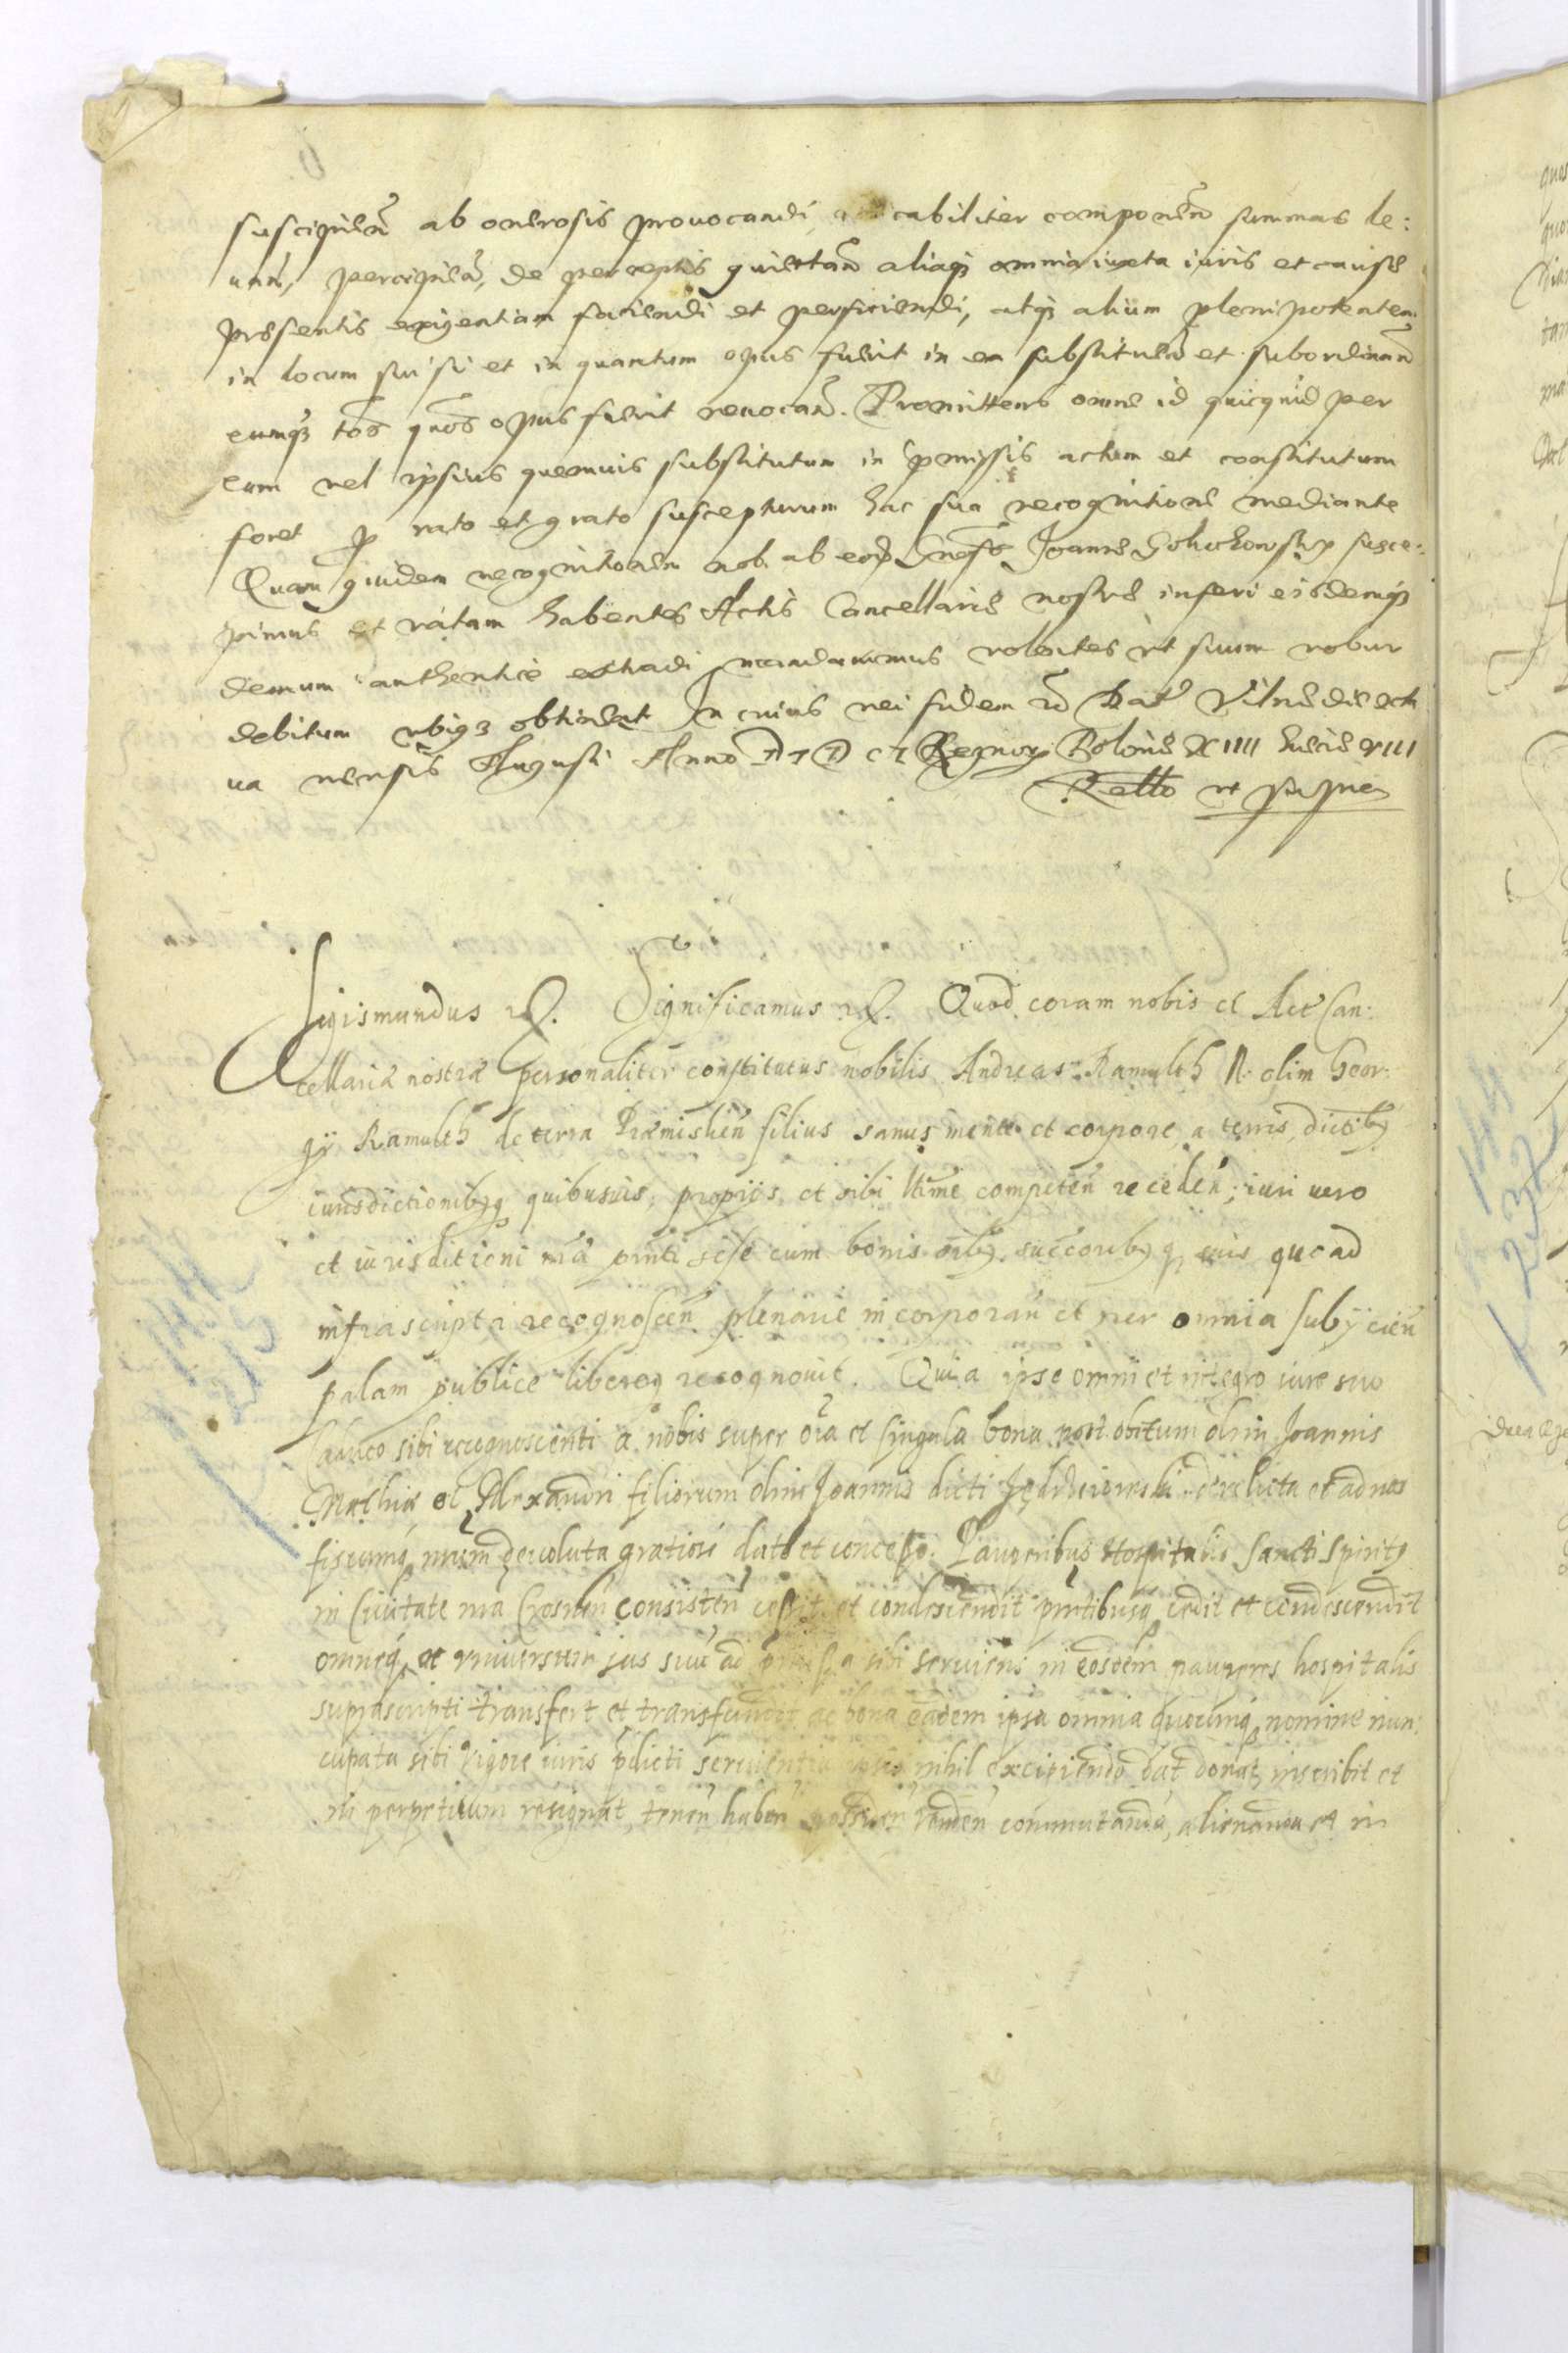 suscipien ab onerosis prouocandi cabiliter componen summas le:
uan, percipien, de perceptis quiettan aliaq omnia iuxta iuris et causae
praesentis exigentiam faciendi et perficiendi, atq alium plenipotentem
in locum sui si et in quantum opus fuerit in ea substituen et subordinan
eumq tos quos opus fuerit reuocan. Promittens omne id quicquid per
eum uel ipsius quemuis substitutum in pmissis actum et constitutum
foret p rato et grato suscepturum hac sua recognitione mediante
Quam quidem recognitionem nob. ab eod Joanne Goluchowsky susce:
pimus et ratam habentes Actis Cancellariae nostrae inseri eisdemq
demum authentice extradi mandauimus volentes ut suum robur
debitum ubiq obtineat In cuius rei fidem Dat Vilnae die octa
ua mensis Augusti Anno Regnor Poloniae XIIII Sueciae VIII
Rello ut supra
Sigismundus Significamus Quod coram nobis et Act Can:
cellariae nostrae personaliter constitutus nobilis Andreas Ramulth N. olim Geor:
gij Ramulth de terra Praemislien filius sanus mente et corpore, a terris, dictib
iurisdictionibq quibusuis, proprijs et sibi ltime competen receden; iuri uero
et iurisditioni nra pnti sese cum bonis oib succoribq suis quoad
infrascripta recognoscen plenarie incorporan et per omnia subijcien
palam publice libereq recognouit. Quia ipse omni et integro iure suo
caduco sibi recognoscenti a nobis super oia et singula bona post obitum olim Joannis
Mathiae et Alexandri filiorum olim Joannis dicti derelicta et ad nos
fiscumq nrum deuoluta gratiose dato et concesso. Pauperibus Hospitalis Sancti Spirit
in Ciuitate nra Crosnen consisten cessit et condescendit pntibusq cedit et condescendit
omneq et vniuersum jus suu ad sibi seruiens in eosdem pauperes hospitalis
suprascripti transfert et transfundit ac bona eadem ipsa omnia quocunq nomine nun:
cupata sibi vigore iuris pdicti seruientia nihil excipiendo dat donat, inscribit et
in perpetuum resignat, tenen haben possiden venden commutanda, alienanda et in